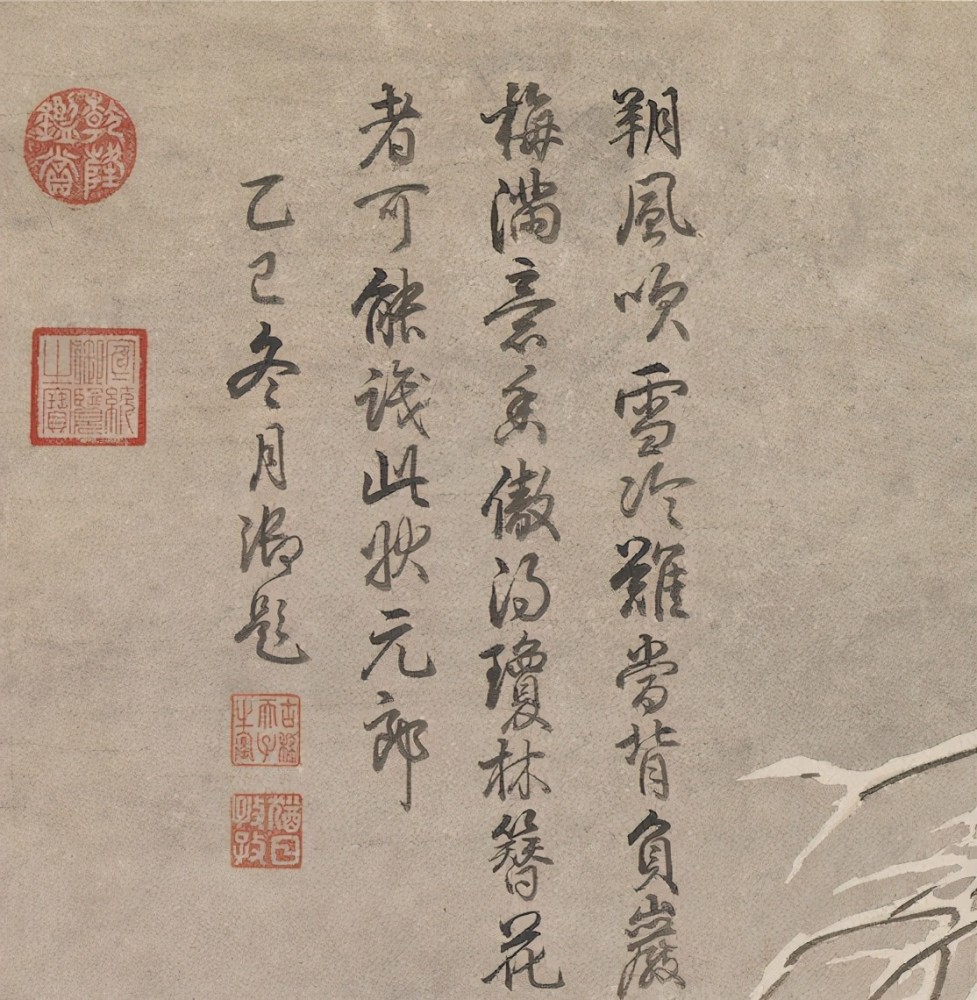 朔風吹雪冷難當背負巖
梅滿意香傲得瓊林簪花
者可能識此狀元郎
乙巳冬月御題
古稀天子之寶
猶日孜孜
乾隆鑑賞
宣統御覽之寶